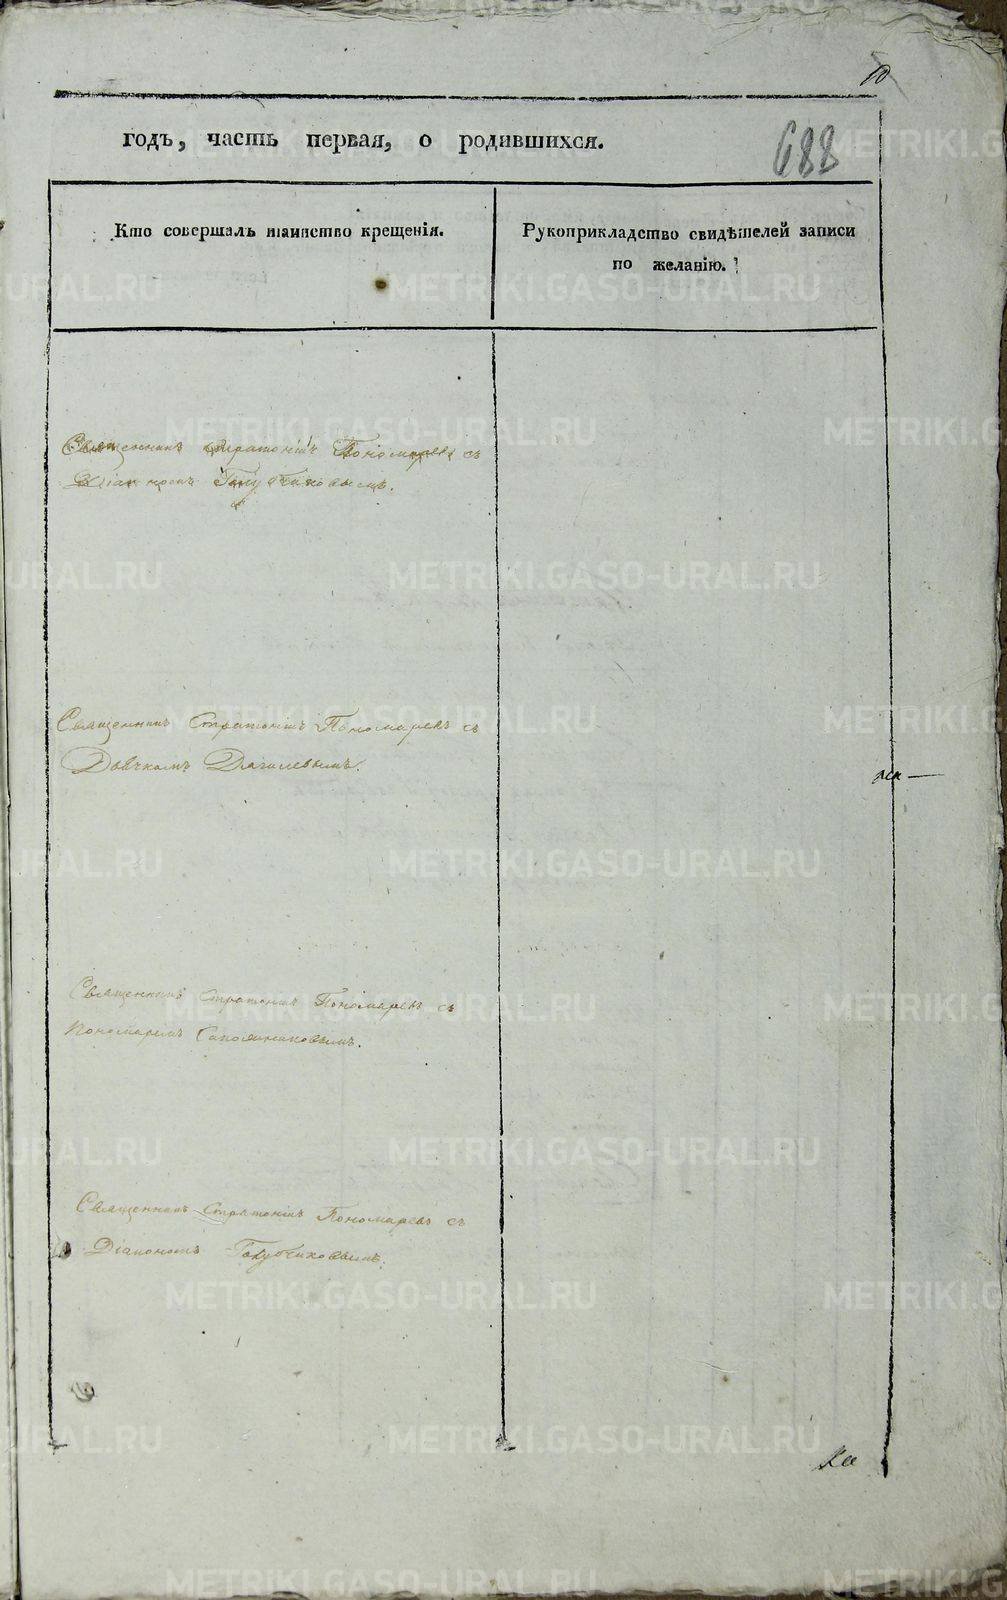 10
годъ, часть первая, о родившихся.
688
Кто совершалъ таинство крещенія.
Рукоприкладство свидѣтелей записи
по желанію.
Священникъ Стратоникъ Пономаревъ съ
Діакономъ Голубчиковымъ.
Священникъ Стратоникъ Пономаревъ съ
Дьячкомъ Дягилевымъ.
Священникъ Стратоникъ Пономаревъ съ
Пономаремъ Сапожниковымъ.
Священникъ Стратоникъ Пономаревъ съ
Діакономъ Голубчиковымъ.
METRIKI.GASO-URAL.RU